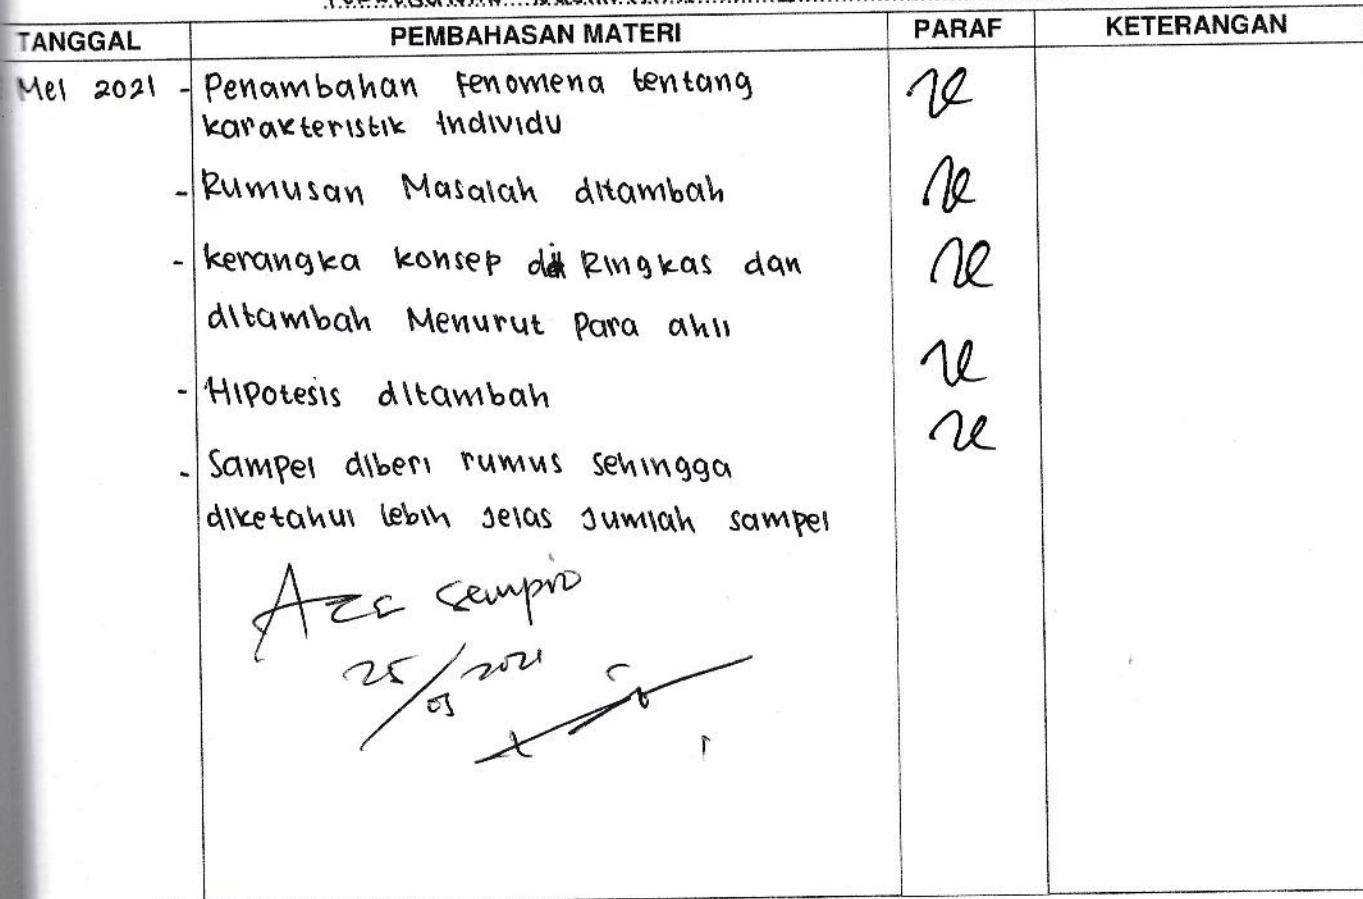 TANGGAL PEMBAHASAN MATERI PARAF KETERANGAN
Mei 2021 - Penambahan fenomena tentang
karakteristik individu
- Rumusan Masalah ditambah
- kerangka konsep di Ringkas dan
ditambah Menurut Para ahli
- Hipotesis ditambah
- Sampel diberi rumus sehingga
diketahui lebih jelas jumlah sampel
25/05 2021